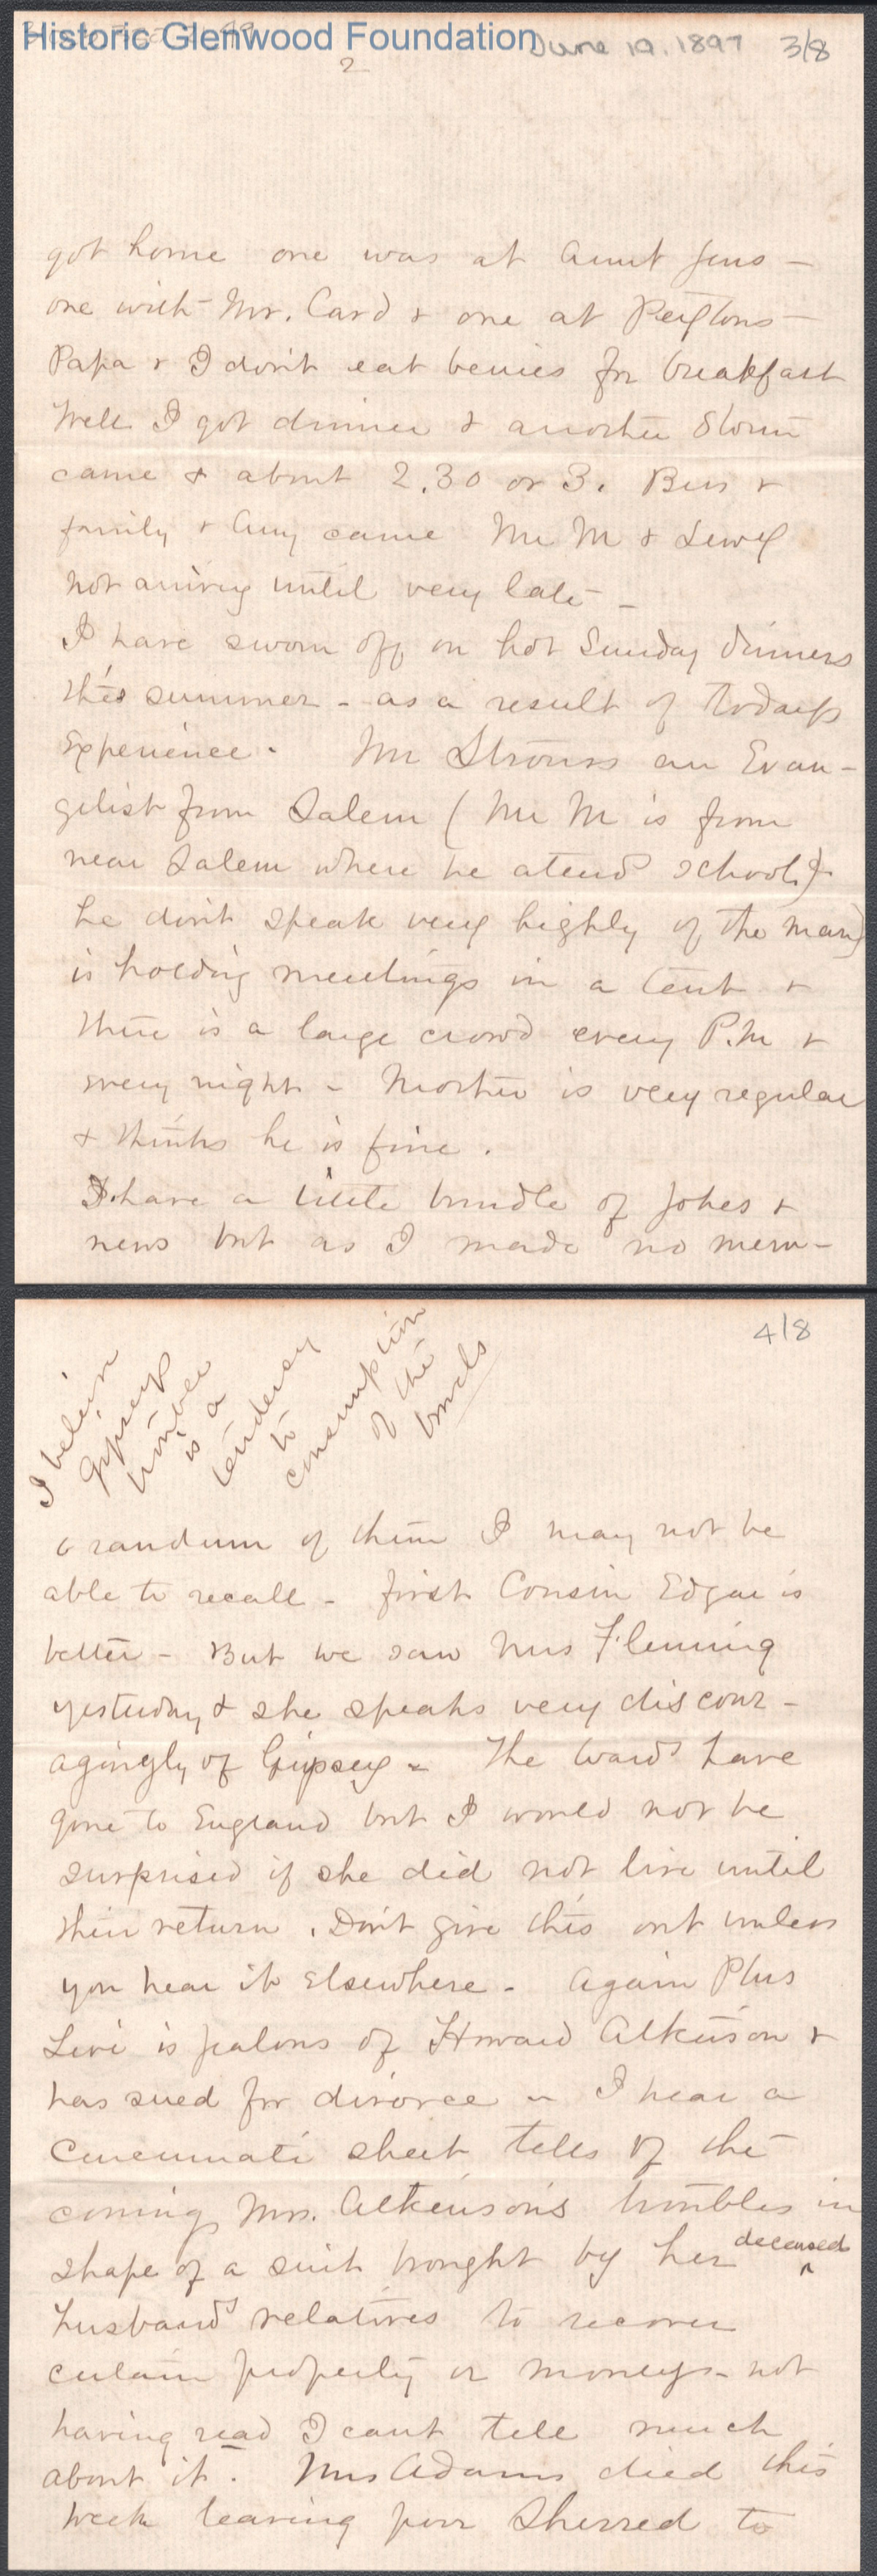 Historic Glenwood Foundation
June 19. 1897 3/8
2
got home one was at Aunt Jens —
one with Mr. Card & one at Peytons —
Papa & I don't eat berries for breakfast
Well I got dinner & another storm
came & about 2.30 or 3. Ben &
family & Amy came Mr M & Lewy
not arriving until very late —
I have sworn off on hot Sunday dinners
this summer - as a result of todays
experience - Mr Strouss an Evan-
gelist from Salem ( Mr M is from
near Salem where he atend school) &
he don't speak very highly of the man)
is holding meetings in a tent &
there is a large crowd every P.M &
every night - Mother is very regular
& thinks he is fine .
I have a little bundle of jokes &
news but as I made no mem-
4/8
I believe
Gipseys
trouble
is a
tendency
to
consumption
of the
bowels
orandum of them I may not be
able to recall - first Cousin Edgar is
better - But we saw Mrs Fleming
yesterday & she speaks very discour-
agingly of Gipsey - The Wards have
gone to England but I would not be
surprised if she did not live until
their return . Don't give this out unless
you hear it elsewhere - Again Plus
Levi is jealous of Howard Atkinson &
has sued for divorce - I hear a
Cincinnati sheet tells of the
coming Mrs. Atkinson's troubles in
shape of a suit brought by her deceased
husbands relatives to recover
certain property or moneys - not
having read I cant tell much
about it . Mrs Adams died this
week leaving poor Sherred to